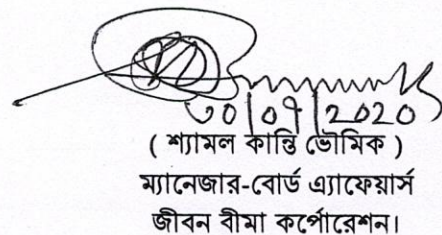 ৩০|০৭|2020
( শ্যামল কান্তি ভৌমিক )
ম্যানেজার-বোর্ড এ্যাফেয়ার্স
জীবন বীমা কর্পোরেশন।